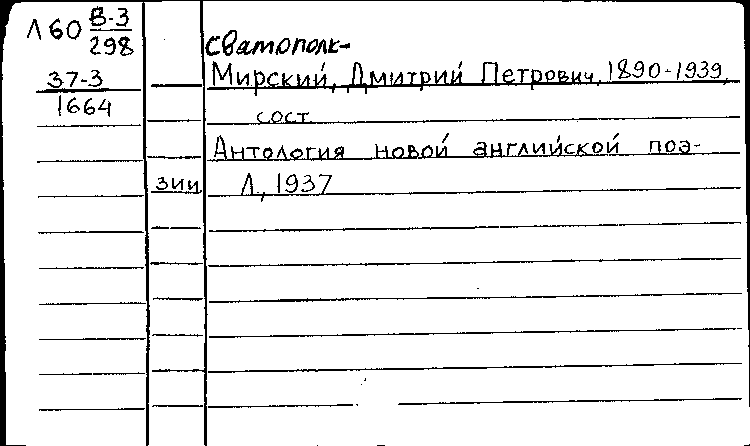 Л60 В-3
298
37-3
1664
Сватополк-
Мирский, Дмитрий Петрович, 1890-1939,
сост
Антология новой английской поэ-
зии Л., 1937